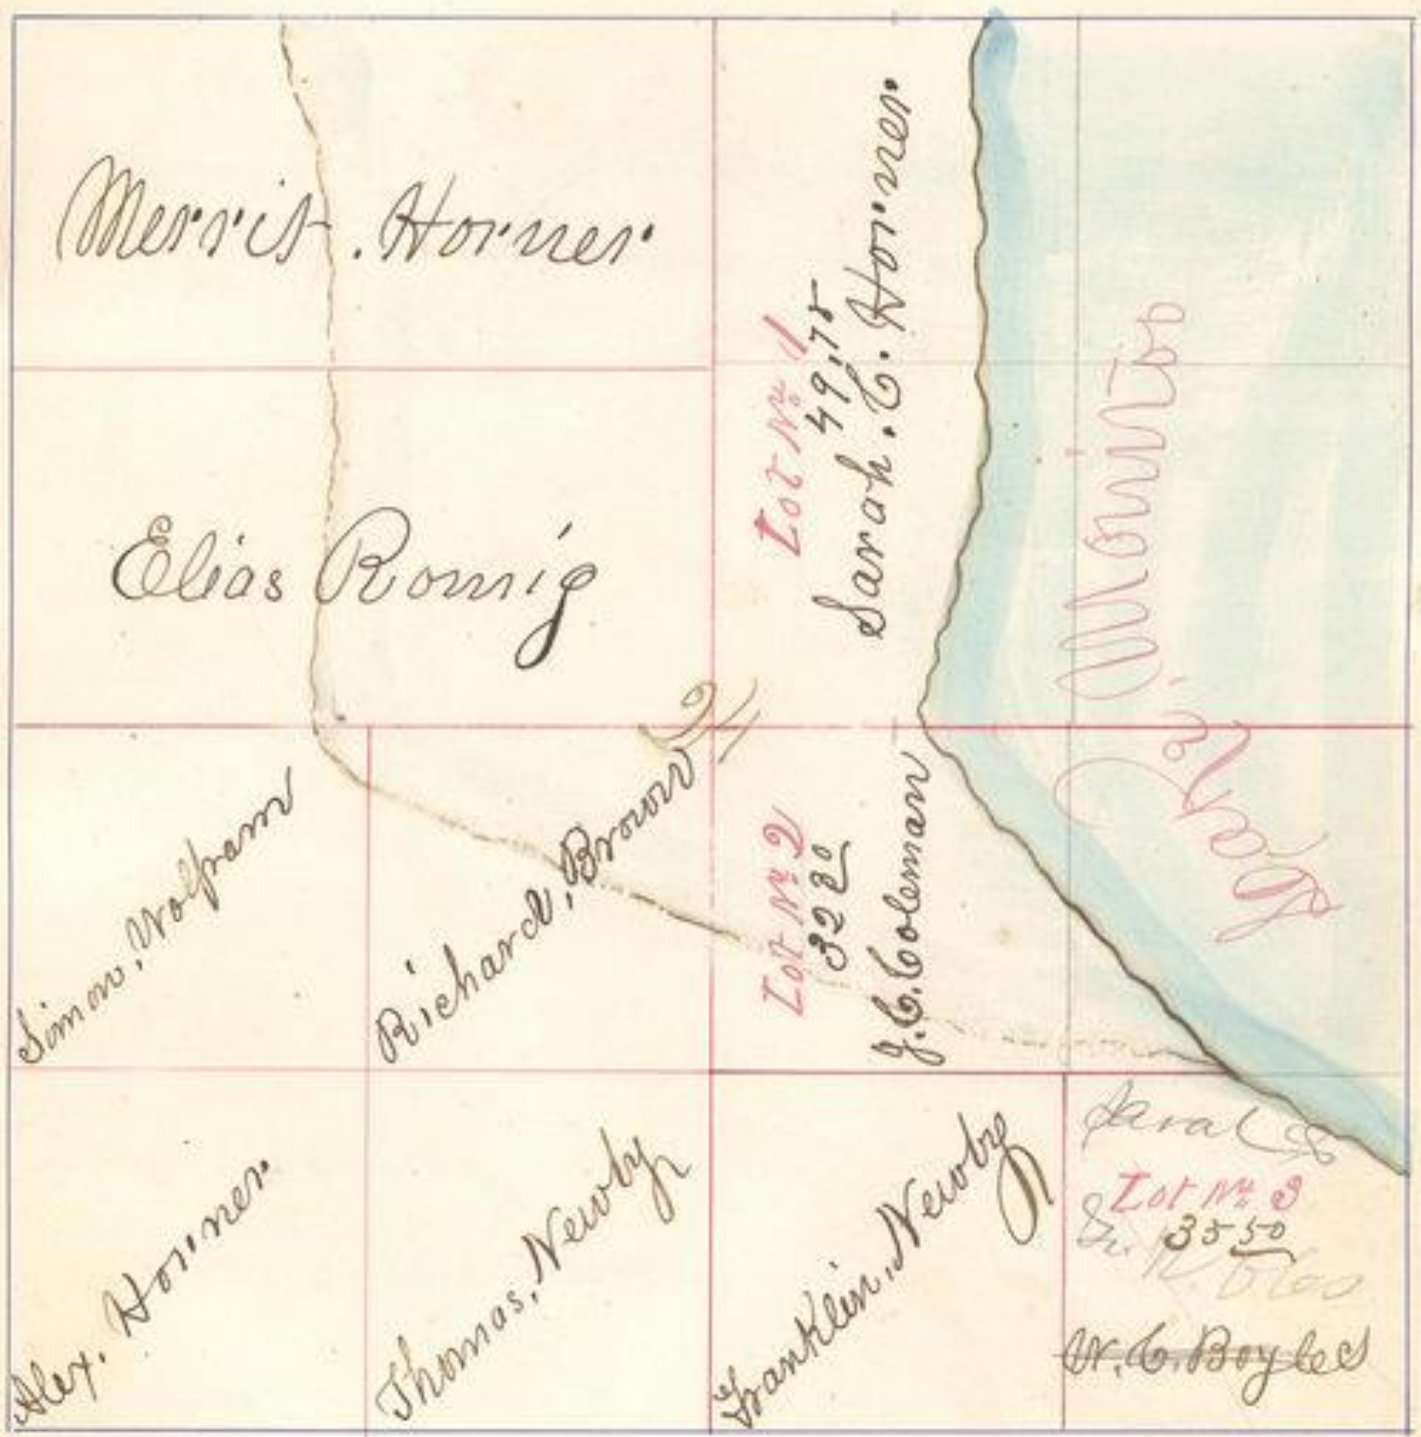 Merrit. Horner
Elias Romig
Lot No. 1
49.75
Sarah. C. Horner
24
Simon, Wolfram
Richard, Brown
Lot No. 2
32 80
J. C. Coleman
Alex. Horner
Thomas, Newby
Franklin, Newby
Sarah
Lot No. 3
35 50
W. C. Boyles